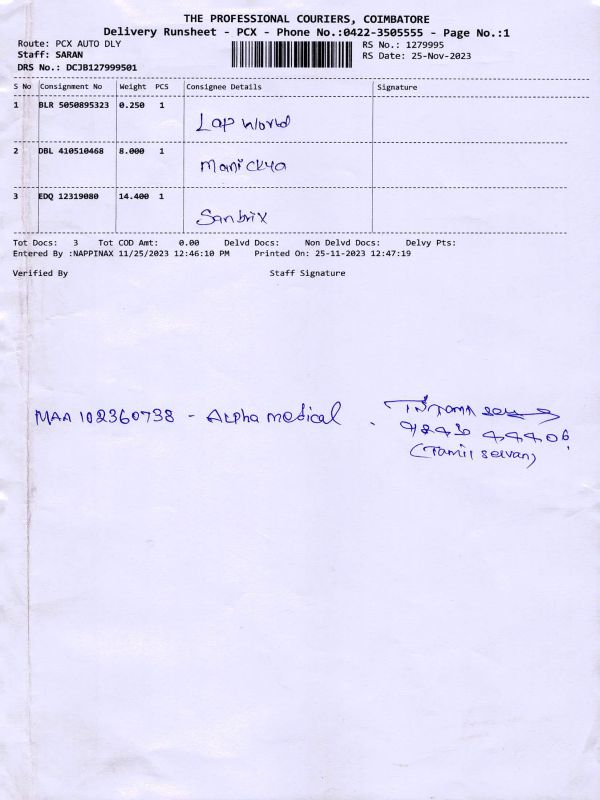 THE PROFESSIONAL COURIERS, COIMBATORE
Delivery Runsheet - PCX - Phone No.:0422-3505555 - Page No.:1
Route: PCX AUTO DLY
RS No.: 1279995
Staff: SARAN
RS Date: 25-Nov-2023
DRS No.: DCJB127999501
S No Consignment No Weight PCS Consignee Details Signature
1 BLR 5050895323 0.250 1
Lap World
2 DBL 410510468 8.000 1
Manickya
3 EDQ 12319080 14.400 1
Sanbrix
Tot Docs: 3 Tot COD Amt: 0.00 Delvd Docs: Non Delvd Docs: Delvy Pts:
Entered By :NAPPINAX 11/25/2023 12:46:10 PM Printed On: 25-11-2023 12:47:19
Verified By Staff Signature
MAA 102360738 - Alpha medical
(Tamil selvan)